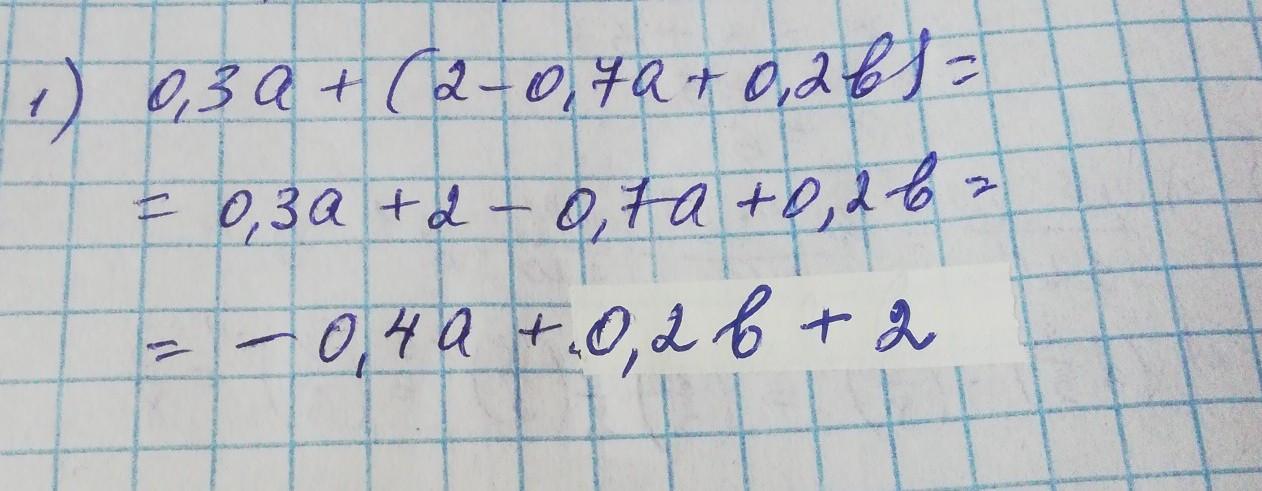 1) 0,3a + (2 - 0,7a + 0,2в) =
= 0,3a + 2 - 0,7a + 0,2в =
= - 0,4a + 0,2в + 2